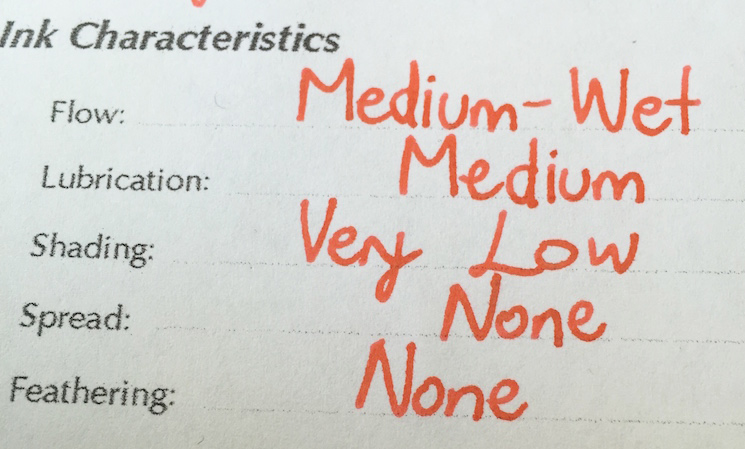 Ink Characteristics
Flow: Medium-Wet
Lubrication: Medium
Shading: Very Low
Spread: None
Feathering: None